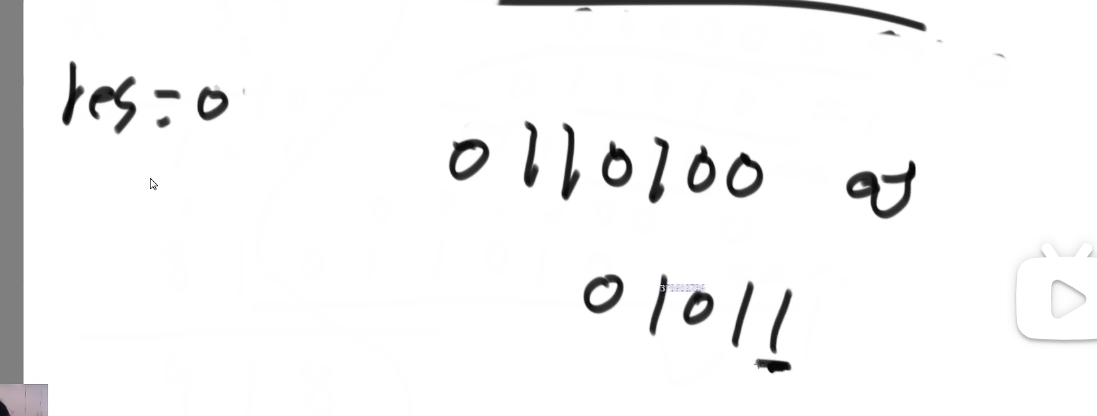 res=0
0110100
01011